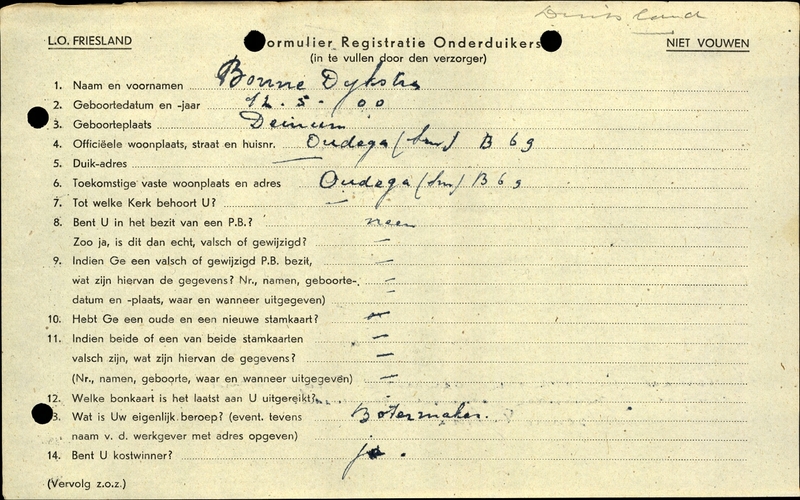 Duitsland
L.O. FRIESLAND
Formulier Registratie Onderduikers
NIET VOUWEN
(in te vullen door den verzorger)
1. Naam en voornamen Bonne Dykstra
2. Geboortedatum en -jaar 12.5.00
3. Geboorteplaats Deinum
4. Officiëele woonplaats, straat en huisnr. Oudega (Sm) B 69
5. Duik-adres —
6. Toekomstige vaste woonplaats en adres Oudega (Sm) B 69
7. Tot welke Kerk behoort U? —
8. Bent U in het bezit van een P.B.? neen
Zoo ja, is dit dan echt, valsch of gewijzigd? —
9. Indien Ge een valsch of gewijzigd P.B. bezit, —
wat zijn hiervan de gegevens? Nr., namen, geboorte- —
datum en -plaats, waar en wanneer uitgegeven) —
10. Hebt Ge een oude en een nieuwe stamkaart? —
11. Indien beide of een van beide stamkaarten —
valsch zijn, wat zijn hiervan de gegevens? —
(Nr., namen, geboorte, waar en wanneer uitgegeven) —
12. Welke bonkaart is het laatst aan U uitgereikt?
13. Wat is Uw eigenlijk beroep? (event. tevens Botermaker.
naam v. d. werkgever met adres opgeven)
14. Bent U kostwinner? ja.
(Vervolg z.o.z.)